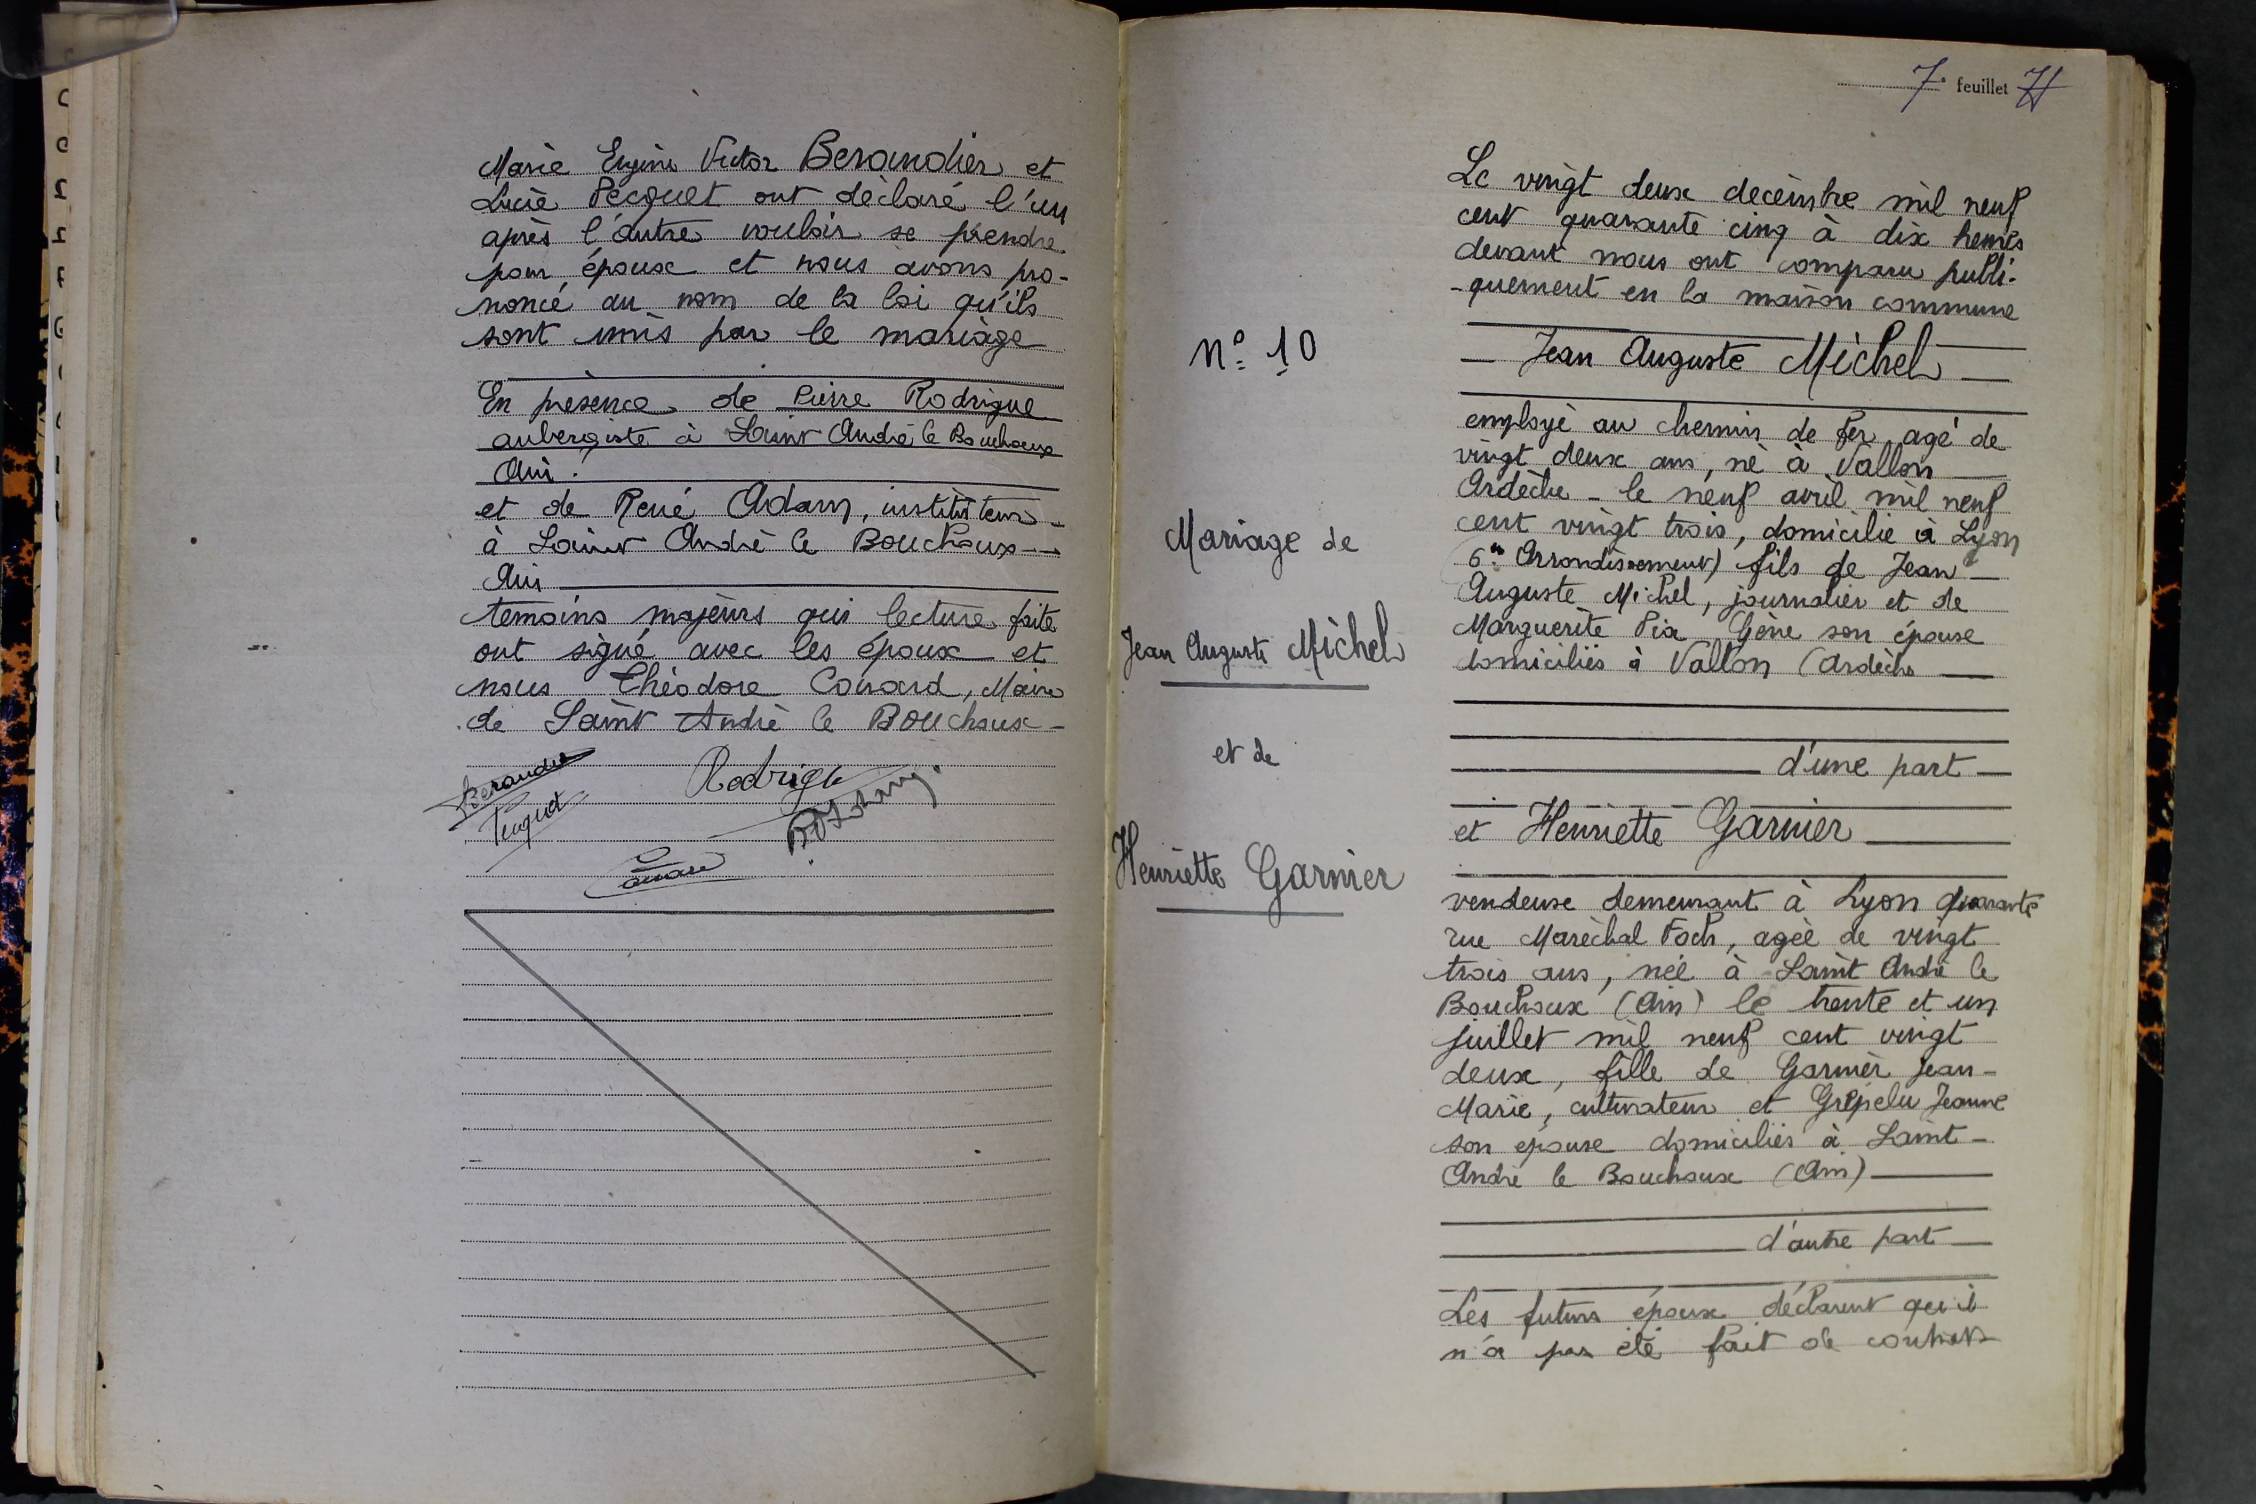 Marie Eugène Victor Berandier et
Lucie Pecquet ont déclaré l'un
après l'autre vouloir se prendre
pour époux et nous avons pro-
noncé au nom de la loi qu'ils
sont unis par le mariage
En présence de Pierre Rodrigue
aubergiste à Saint André le Bouchoux
Ain.
et de René Adam, instituteur
à Saint André le Bouchoux
Ain
temoins majeurs qui lecture faite
ont signé avec les époux et
nous Théodore Conard, Maire
de Saint André le Bouchoux
Berandier
Pecquet
Rodrigue
7e feuillet
N° 10
Mariage de
Jean Auguste Michel
et de
Henriette Garnier
Le vingt deux décembre mil neuf
cent quarante cinq à dix heures
devant nous ont comparu publi-
-quement en la maison commune
Jean Auguste Michel
employé au chemin de Fer agé de
vingt deux ans, né à Vallon
Ardèche - le neuf avril mil neuf
cent vingt trois, domicilié à Lyon
6e Arrondissement) fils de Jean
Auguste Michel, journalier et de
Marguerite Pia Gène son épouse
domiciliés à Vallon (Ardèche
d'une part
et Henriette Garnier
vendeuse demeurant à Lyon quarante
rue Maréchal Foch, agée de vingt
trois ans, née à Saint André le
Bouchoux (Ain) le trente et un
juillet mil neuf cent vingt
deux, fille de Garnier Jean-
Marie, cultivateur et Grépelu Jeanne
son épouse domiciliés à Saint-
André le Bouchoux (Ain)
d'autre part
Les futurs époux déclarent qu'il
n'a pas été fait de contrat